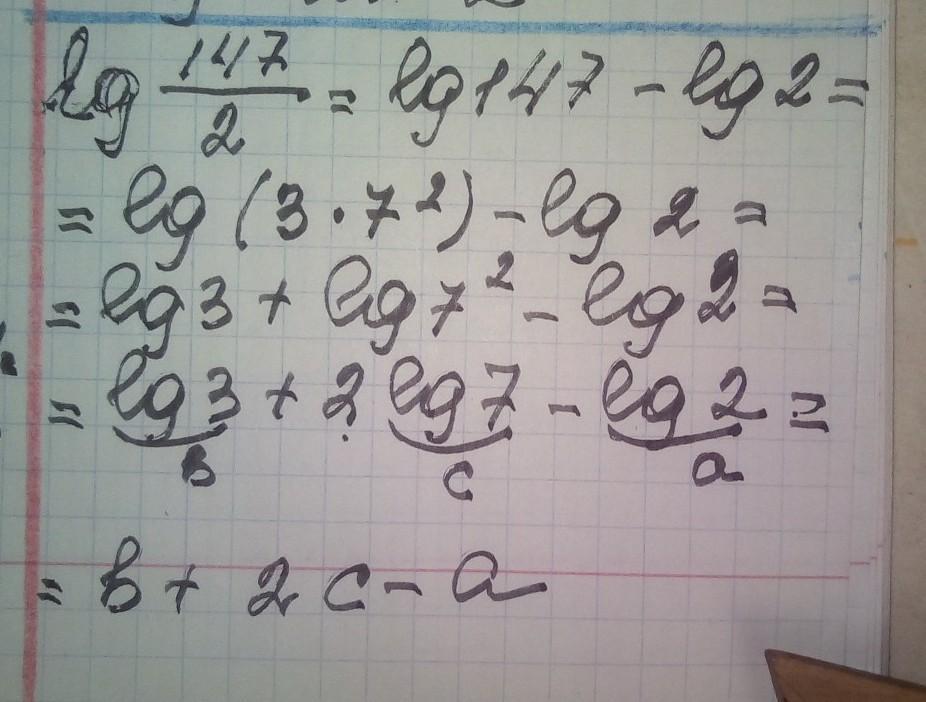 lg 147/2 = lg 147 - lg 2 =
= lg (3 · 7²) - lg 2 =
= lg 3 + lg 7² - lg 2 =
= lg 3 + 2 lg 7 - lg 2 =
в c a
= в + 2c - a